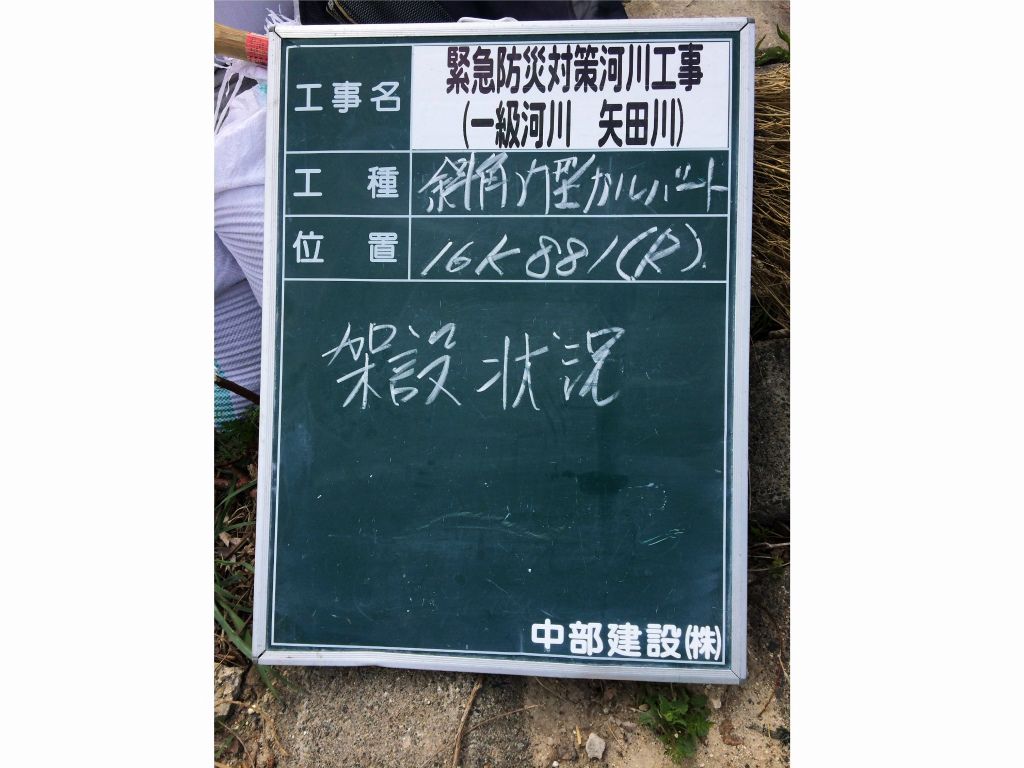 工事名 緊急防災対策河川工事
(一級河川 矢田川)
工種 斜角門型カルバート
位置 16K881(R).
架設状況
中部建設(株)